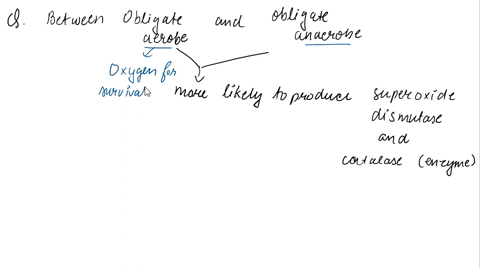 Q. Between Obligate aerobe and obligate anaerobe
Oxygen for survival
more likely to produce superoxide dismutase and catalase (enzyme)